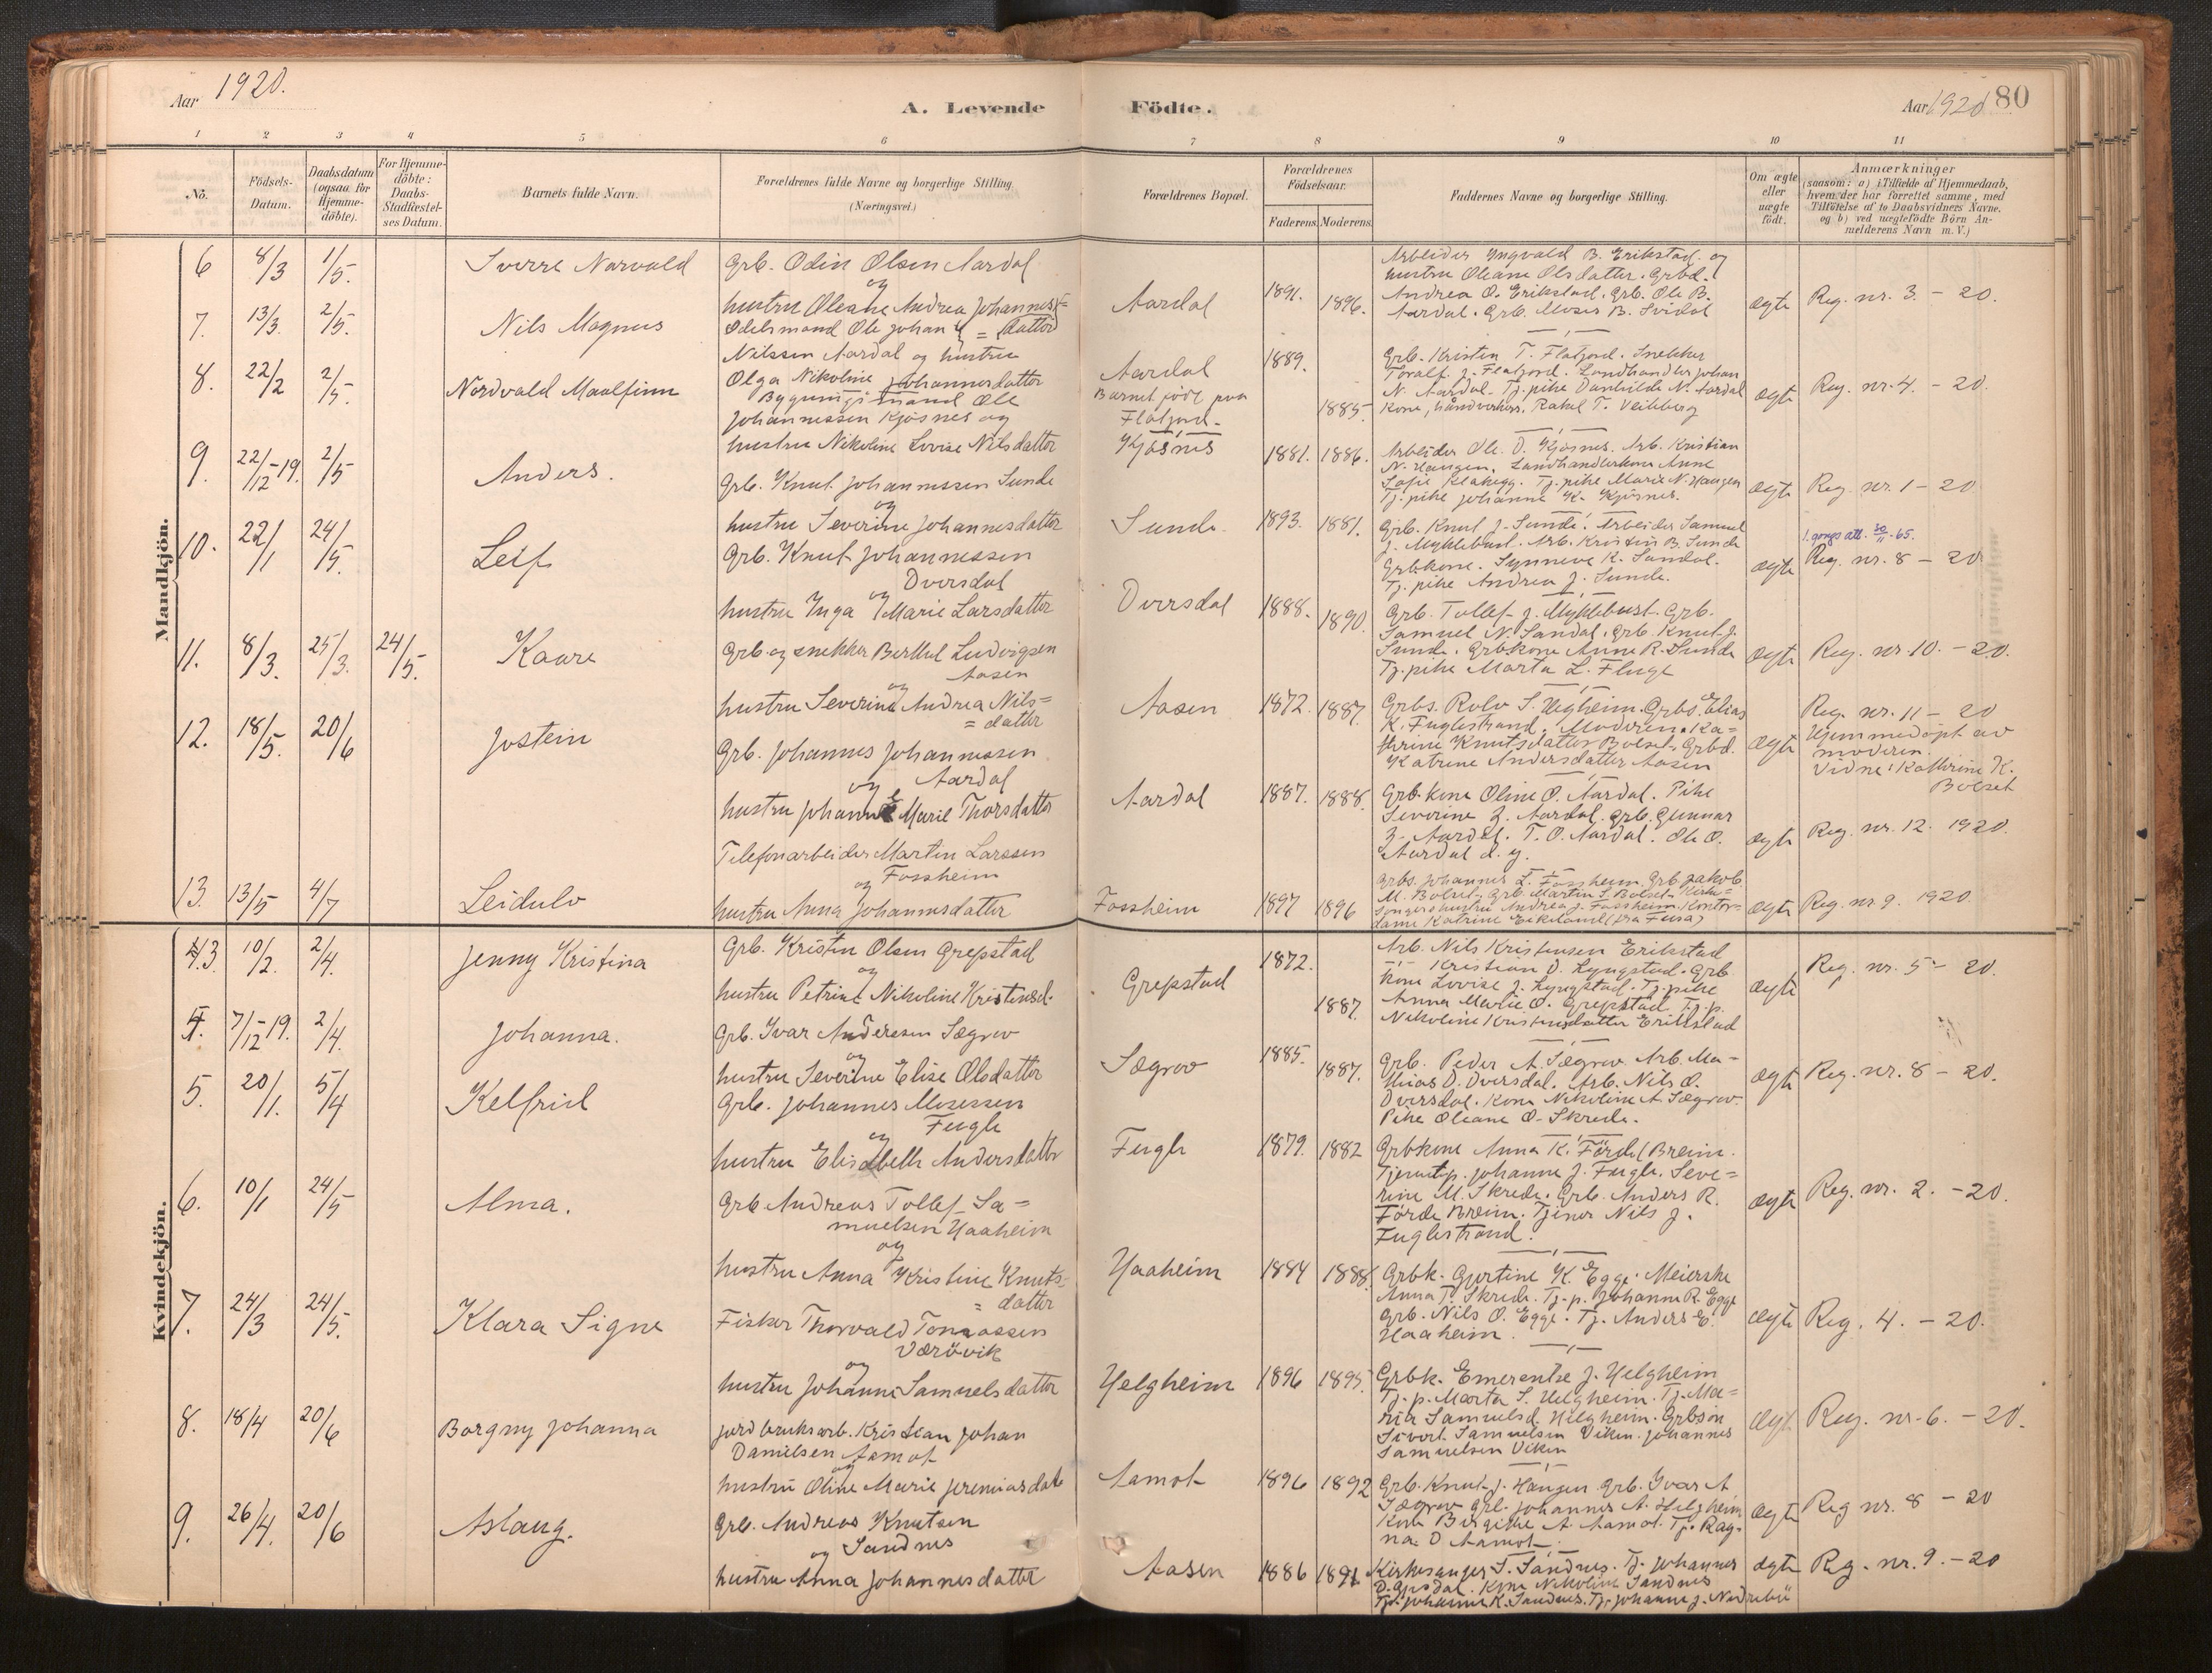 Aar 1920.
A. Levende Födte.
Aar 1920 80
1 2 3 4 5 6 7 8 9 10 11
No.
Födsels-Datum.
Daabsdatum (ogsaa for Hjemme-döbte).
For Hjemme-döbte: Daabs-Stadfæstel-ses Datum.
Barnets fulde Navn.
Forældrenes fulde Navne og borgerlige Stilling.
(Næringsvei.)
Forældrenes Bopæl.
Forældrenes Födselsaar.
Faderens. Moderens.
Faddernes Navne og borgerlige Stilling.
Om ægte eller uægte födt.
Anmærkninger
(saasom: a) i Tilfælde af Hjemmedaab,
hvem der har forrettet samme, med
Tilföielse af to Daabsvidners Navne.
og b) ved uægtefödte Börn An-
melderens Navn m. V.)
Mandkjön.
6 8/3 1/5. Sverre Norvald
Grb. Odin Olsen Aardal
og
hustru Oleane Andrea Johannes=
=datter
Aardal 1891. 1896.
Arbeider Ingvald B. Erikstad og
hustru Oleane Olsdatter. Grbd.
Andrea O. Erikstad. Grb. Ole B.
Aardal. Grb. Moses B. Svidal
ægte Reg. nr. 3. - 20.
7. 13/3. 2/5. Nils Magnus
Odelsmand Ole Johan
Nilssen Aardal og hustru
Olga Nikoline Johannesdatter
Aardal
Barnet født paa
Flatjord.
1889. 1885
Grb. Kristen T. Flatjord. Snekker
Toralf J. Flatjord. Landhandler Johan
N. Aardal. Tj. pike Danhilde N. Aardal
Kone, håndverker. Rakel T. Veiteberg
ægte Reg. nr. 4. - 20.
8. 22/2 2/5. Nordvald Maalfinn
Bygningsmand Ole
Johannessen Kjøsnes og
hustru Nikoline Lovise Nilsdatter
Kjøsnes 1881. 1886.
Arbeider Ole D. Kjøsnes. Arb. Kristian
N. Haugen. Landhandlerkone Anne
Sofie Klakegg. Tj. pike Marie N. Haugen
Tj. pike Johanne K. Kjøsnes.
ægte Reg. nr. 1 - 20
9. 22/12-19. 2/5 Anders.
Grb. Knut Johannessen Sunde
og
hustru Severine Johannesdatter
Sunde. 1893. 1881.
Grb. Knut J. Sunde. Arbeider Samuel
J. Myklebust. Arb. Kristen B. Sunde
Grbkone. Synneve K. Sandal.
Tj. pike Andrea J. Sunde.
ægte
1. gangs att. 30/11-65.
Reg. nr. 8 - 20
10. 22/1 24/5. Leif
Grb. Knut Johannessen
Dvergsdal
og
hustru Inga Marie Larsdatter
1888. 1890.
Grb. Tollef J. Myklebust. Grb.
Samuel N. Sandal. Grb. Knut J.
Sunde. Grbkone Anne R. Sunde
Tj. pike Marta L. Fluge
ægte Reg. nr. 10. - 20.
11. 8/3. 25/3. 24/5. Kaare
Grb. og snekker Berthel Ludvigsen
Aasen
og
hustru Severine Andrea Nils=
= datter
Aasen 1872. 1887.
Grbs. Rolv S. Helgheim. Grbs. Elias
K. Fuglestrand. Moderen. Ka=
thrine Knutsdatter Bolset. Grbd.
Katrine Andersdatter Aasen
ægte
Reg. nr. 11 - 20
Hjemmedøpt av
moderen.
Vidne: Kathrine K.
Bolset
12. 18/5. 20/6 Jostein
Grb. Johannes Johannessen
og Aardal
hustru Johanne Marie Thorsdatter
Aardal 1887. 1888.
Grb. kone Oline O. Aardal. Pike
Severine Z. Aardal. Grb. Gunnar
Z. Aardal. T. O. Aardal. Ole O.
Aardal d. y.
ægte Reg. nr. 12. 1920.
13. 13/5 4/7 Leidulv
Telefonarbeider Martin Larssen
Fossheim
og
hustru Anna Johannesdatter
Fossheim 1897 1896
Grbs. Johannes L. Fossheim. Grb. Jakob
M. Bolset. Grb. Martin S. Bolset. Kirke=
sanger hustru Andrea J. Fossheim. Kontor-
dame Katrine Eikeland (fra Fusa)
ægte Reg. nr. 9. 1920.
Kvindekjön.
3 10/2. 2/4. Jenny Kristina
Grb. Kristen Olsen Grepstad
og
hustru Petrine Nikoline Kristensd.
Grepstad 1872. 1887.
Arb. Nils Kristensen Erikstad
Kristian O. Lyngstad. Grb
kone Lovise J. Lyngstad. Tj. pike
Anna Marie O. Grepstad Tj. p.
Nikoline Kristensdatter Erikstad
ægte Reg. nr. 5 - 20.
4. 7/12-19. 2/4. Johanna.
Grb. Ivar Andersen Sægrov
og
hustru Severine Elise Olsdatter
Sægrov 1885. 1887.
Grb. Peder A. Sægrov. Arb. Ma-
thias D. Dvergsdal. Arb. Nils O.
Dvergsdal. Kone Nikoline A. Sægrov.
Pike Oleane O. Skrede.
ægte Reg. nr. 8 - 20.
5. 20/1. 5/4 Kelfrid
Grb. Johannes Mosessen
Fugle
og
hustru Elisabeth Andersdatter
Fugle 1879. 1882
Grbkone Anna K. Førde (Breim.
Tjenestp. Johanne J. Fugle. Seve=
rine M. Skrede. Grb. Anders R.
Førde Breim. Tjener Nils J.
Fuglestrand.
ægte Reg. nr. 2. - 20.
6. 10/1 24/5 Alma.
Grb Andreas Tollef Sa=
muelsen Haaheim
og
hustru Anna Kristine Knuts=
= datter
Haaheim 1884 1888
Grbk. Gjertine K. Egge. Meierske
Anna T. Skrede. Tj. p. Johanne R. Egge
Grb. Nils O. Egge. Tj. Anders E.
Haaheim.
ægte Reg. 4. - 20.
7. 24/3 24/5. Klara Signe
Fisker Thorvald Tomassen
Værøvik
og
hustru Johanne Samuelsdatter
Helgheim 1896 1895
Grbk. Emerentse J. Helgheim
Tj. p. Marta S. Helgheim. Tj. Ma=
ria Samuelsd. Helgheim. Grbsøn
Sivert Samuelsen Viken. Johannes
Samuelsen Viken
ægte Reg. nr. 6. - 20.
8. 18/4 20/6 Borgny Johanna
Jordbruksarb. Kristian Johan
Danielsen Aamot
og
hustru Oline Marie Jeremiasdatt
Aamot 1896 1892
Grb. Knut J. Haugen. Grb. Ivar A
Sægrov Grb. Johannes A. Helgheim
Kone Birgitte A. Aamot. Tj. Rag-
na D Aamot.
ægte Reg nr. 8 - 20
9. 26/4. 20/6 Aslaug.
Grb. Andreas Knutsen
og Sandnes
hustru Anna Johannesdatter
Aasen 1886 1891
Kirkesanger S. Sandnes. Tj. Johannes
Kone Nikoline Sandnes
Tj. Johanne K. Sandnes. Tj. Johanne J. Nedrebø
ægte Reg. nr. 9. - 20